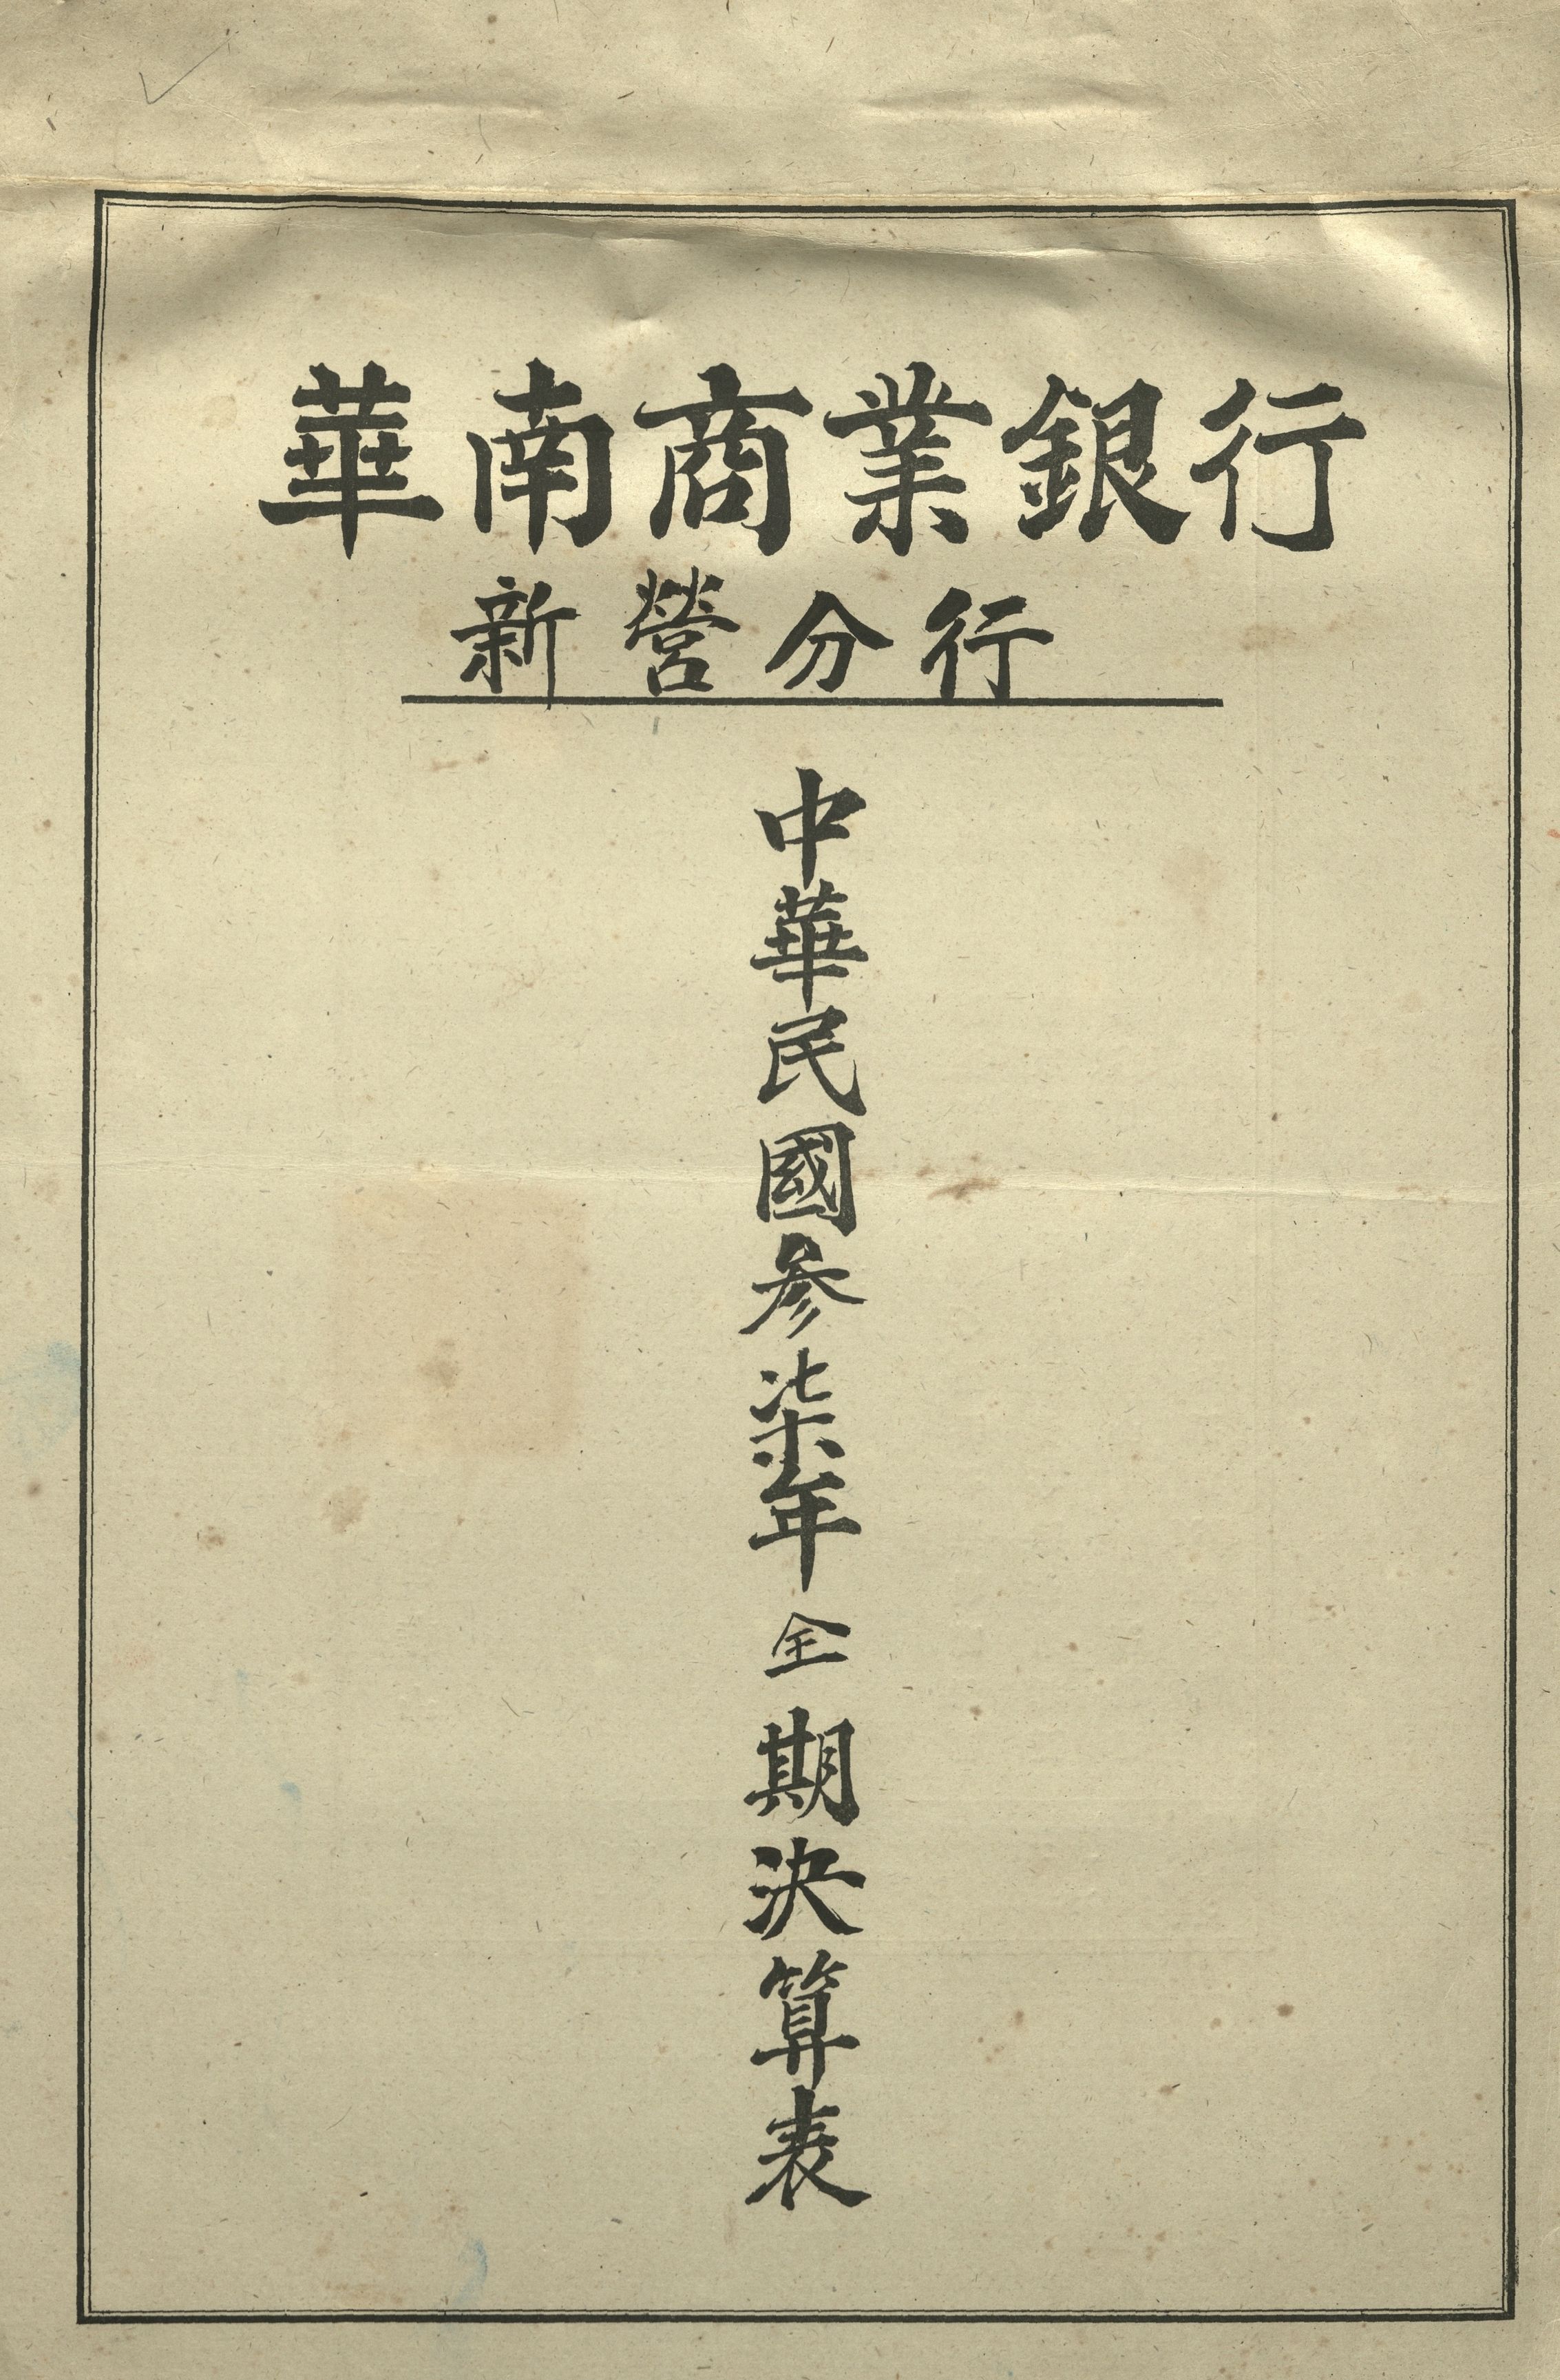 華南商業銀行
新營分行
中華民國參柒年全期決算表